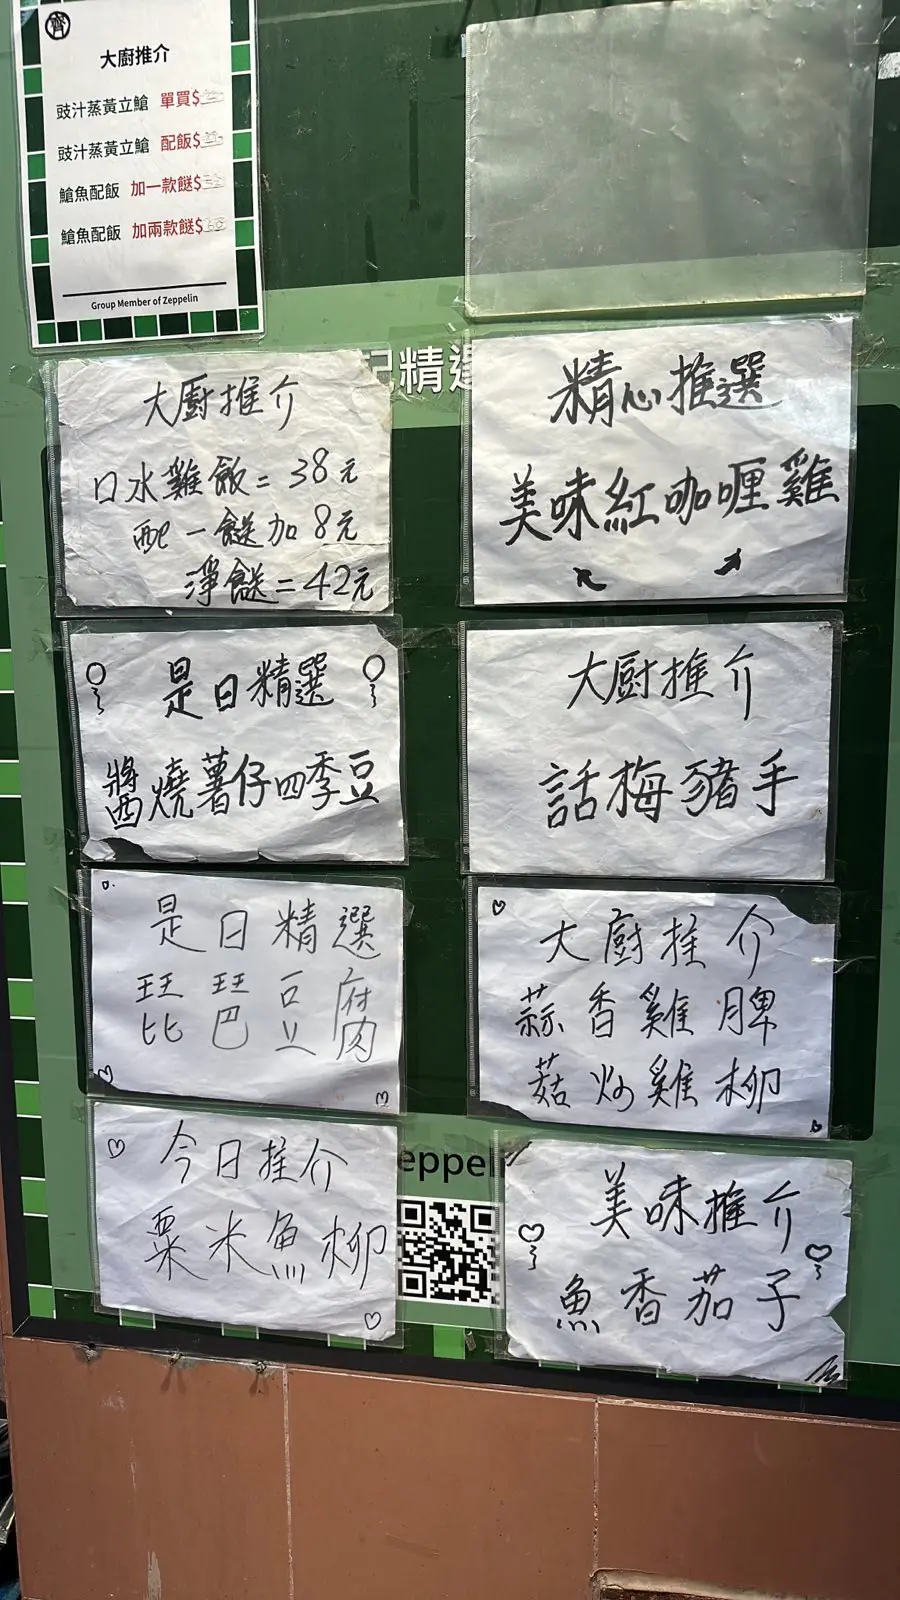 齊
大廚推介
豉汁蒸黃立鯧 單買$
豉汁蒸黃立鯧 配飯$
鯧魚配飯 加一款餸$
鯧魚配飯 加兩款餸$
Group Member of Zeppelin
精選
大廚推介
口水雞飯=38元
配一餸加8元
淨餸=42元
精心推選
美味紅咖喱雞
是日精選
醬燒薯仔四季豆
大廚推介
話梅豬手
是日精選
琵琶豆腐
大廚推介
蒜香雞髀
菇炒雞柳
今日推介
粟米魚柳
eppeli
美味推介
魚香茄子